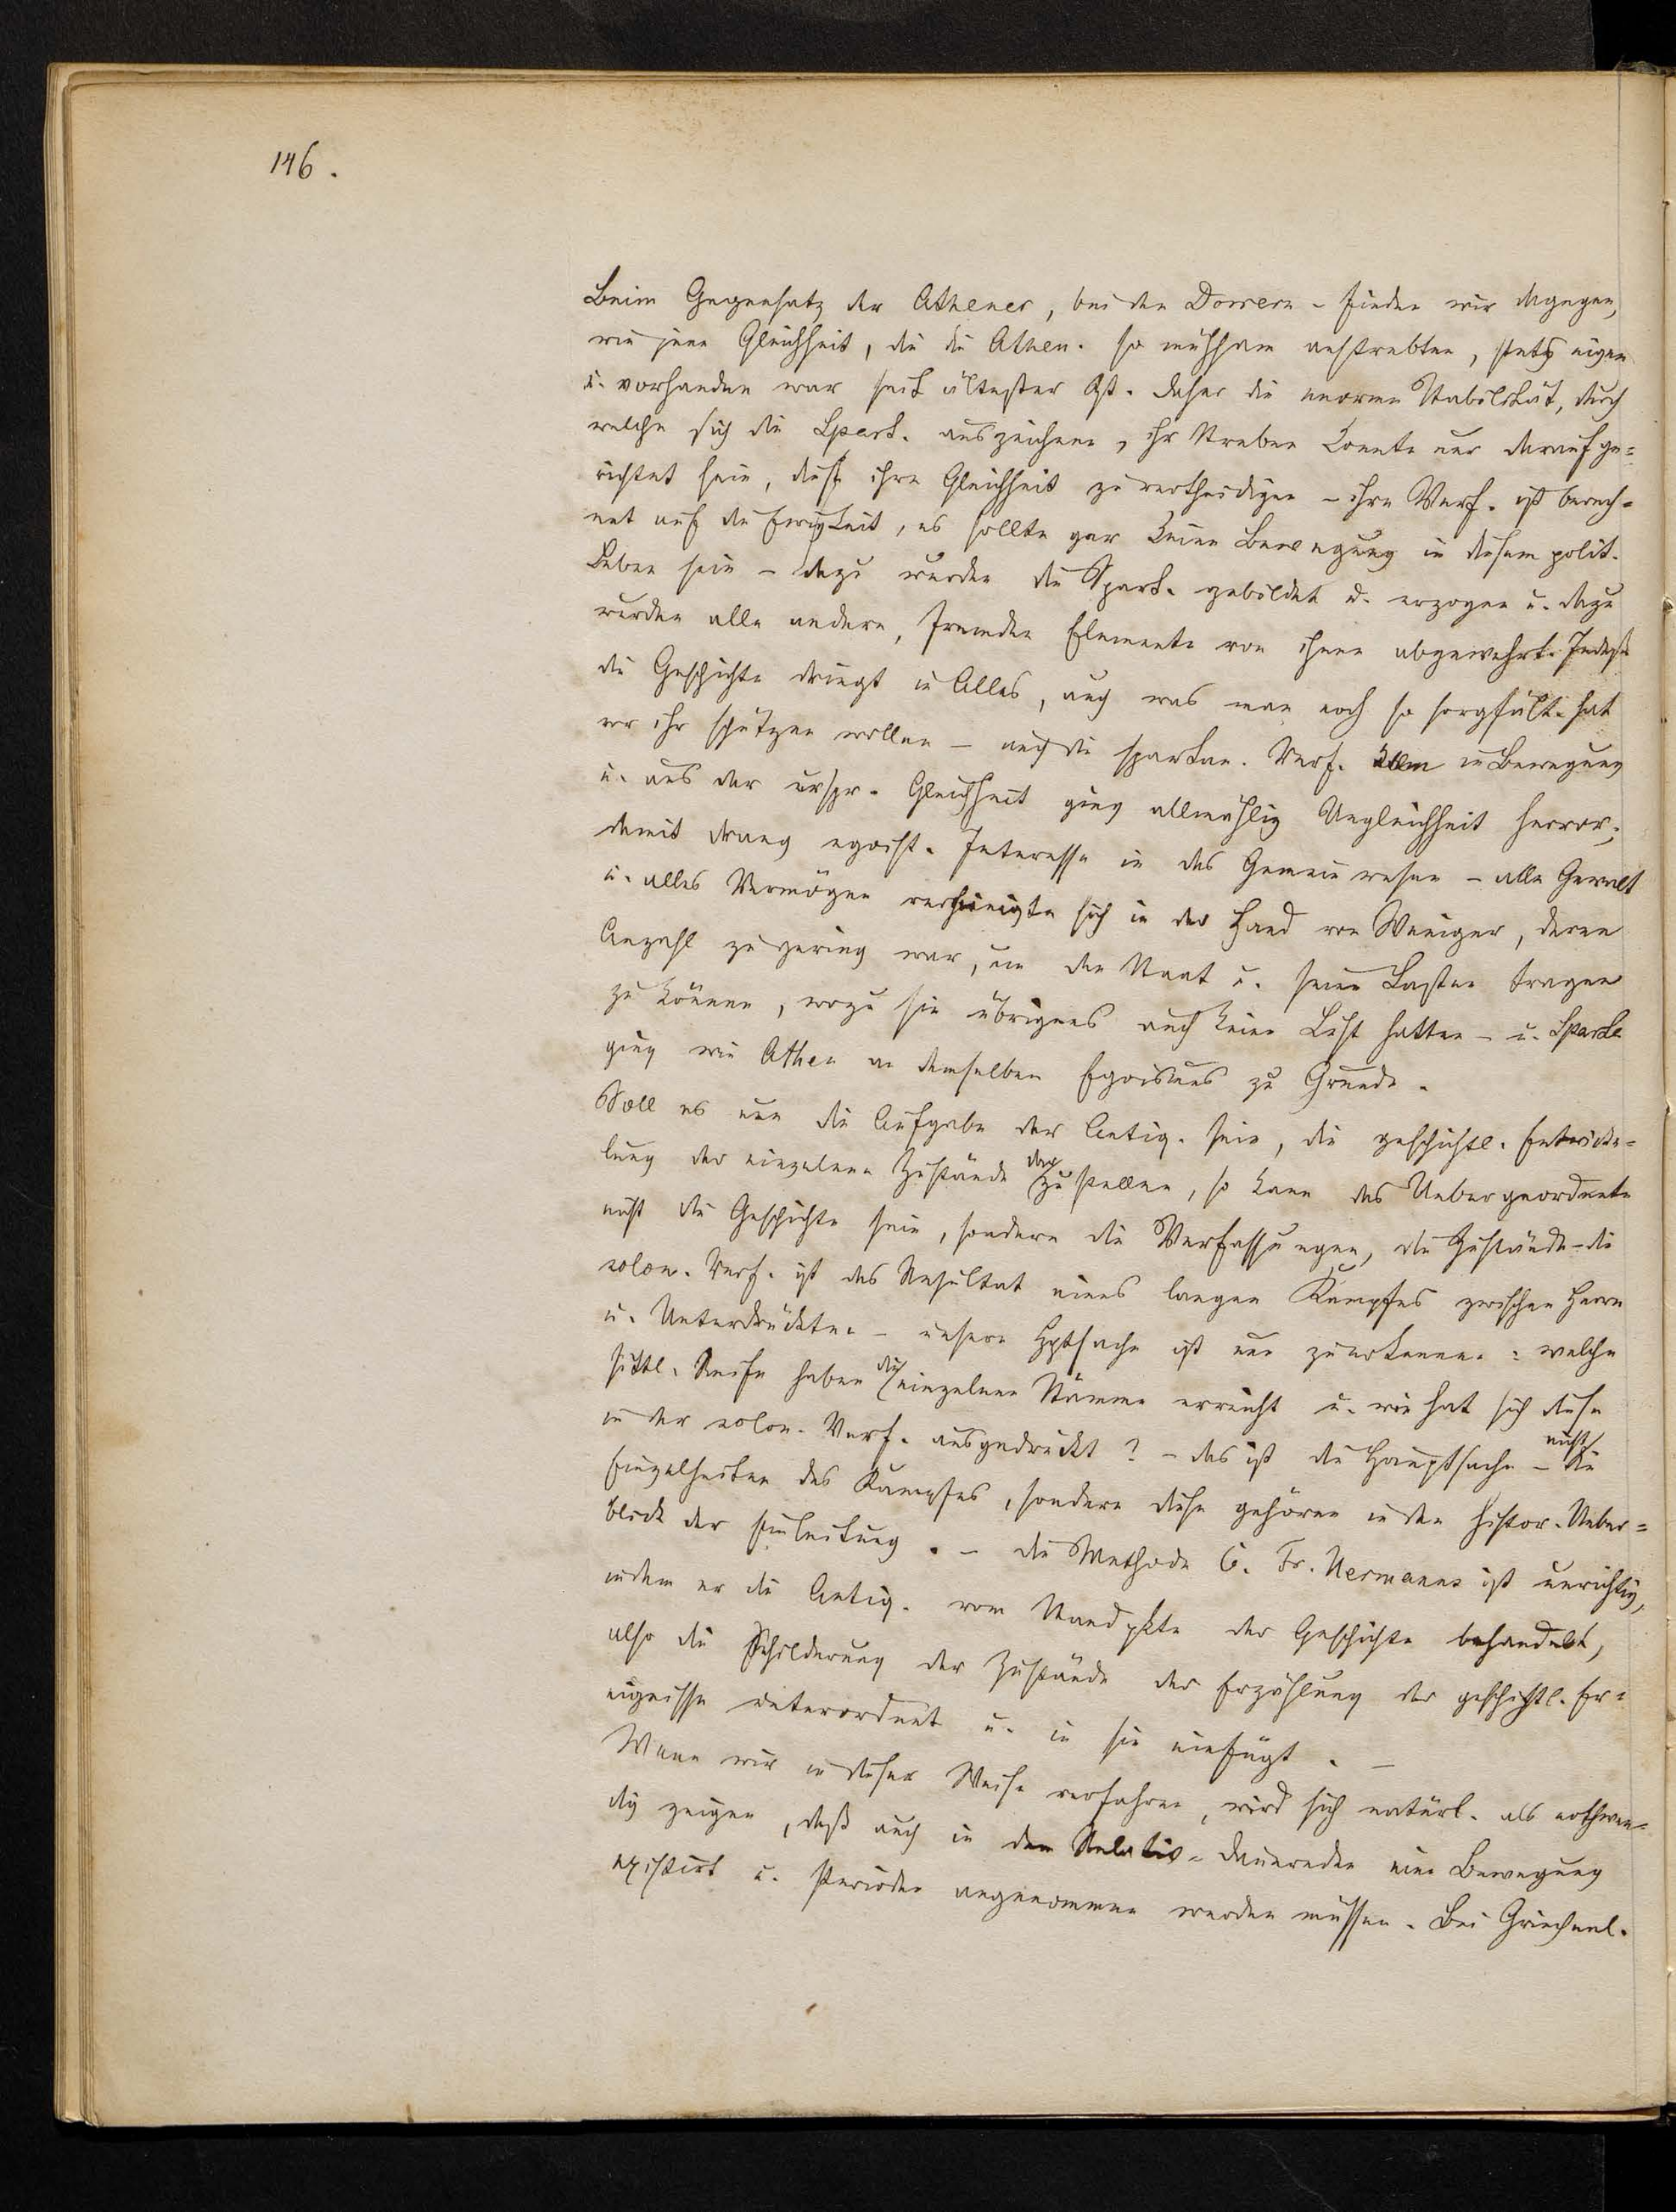 146.
Beim Gegensatz der Athener, bei den Dorrern - finden wir dagegen,
wie jene Gleichheit, die die Athen. so mühsam anstrebten, stets eigen
u. vorhanden war seit ältester Zt. Daher die enorme Stabilität, durch
welche sich die Spart. auszeichnen, ihr Streben konnte nur darauf ge=
richtet sein, diese ihre Gleichheit zu vertheidigen - ihre Verf. ist berech=
net auf die Ewigkeit, es sollte gar keine Bewegung in diesem polit.
Leben sein - dazu wurden die Spart. gebildet u. erzogen u. dazu
wurden alle andern, fremden Elemente von ihnen abgewehrt. Indeß
die Geschichte dringt in Alles, auch was man noch so sorgfält. hat
vor ihr schützen wollen - auch die spartan. Verf. kam in Bewegung
u. aus der urspr. Gleichheit ging allmählig Ungleichheit hervor;
damit drang egoist. Interesse in das Gemeinwesen - alle Gewalt
u. alles Vermögen vereinigte sich in der Hand von Wenigen, deren
Anzahl zu gering war, um den Staat u. seine Lasten tragen
zu können, wozu sie übrigens auch keine Lust hatten - u. Sparta
ging wie Athen an demselben Egoismus zu Grunde.
Soll es nun die Aufgabe der Antiq. sein, die geschichtl. Entwicke=
lung der einzelnen Zustände darzustellen, so kann das Uebergeordnete
nicht die Geschichte sein, sondern die Verfassungen, die Zustände - die
solon. Verf. ist das Resultat eines langen Kampfes zwischen Herrn
u. Unterdrückten - unsere Hptsache ist nun zu erkennen: welche
sittl. Reife haben die einzelnen Stämme erreicht u. wie hat sich diese
in der solon. Verf. ausgedrückt? - das ist die Hauptsache - nicht die
Einzelheiten des Kampfes, sondern diese gehören in den histor. Ueber=
blick der Einleitung. - Die Methode C. Fr. Hermanns ist unrichtig,
indem er die Antiq. vom Standpkte der Geschichte behandelt,
also die Schilderung der Zustände der Erzählung der geschichtl. Er=
eignisse unterordnet u. in sie einfügt. -
Wenn wir in dieser Weise verfahren, wird sich natürl. als nothwen=
dig zeigen, daß auch in dem Relativ-Dauernden eine Bewegung
existirt u. Perioden angenommen werden müssen. Bei Griechenl.